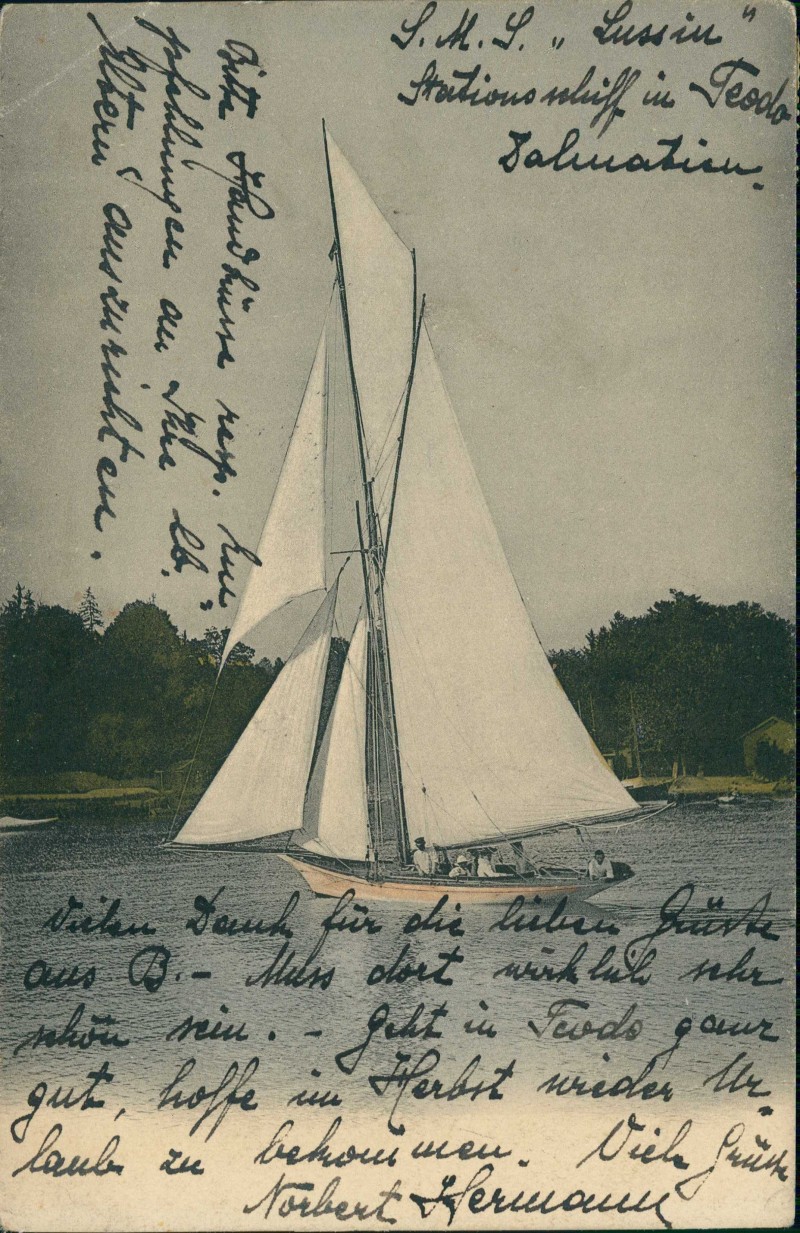 S. M. S. „Lussin"
Stationsschiff in Teodo
Dalmatien.
Bitte Handküsse resp. Em-
pfehlungen an Ihre lb.
Eltern auszurichten.
Vielen Dank für die lieben Grüsse
aus B. – Muss dort wirklich sehr
schön sein. – Geht in Teodo ganz
gut, hoffe im Herbst wieder Ur-
laub zu bekommen. Viele Grüsse
Norbert Hermann